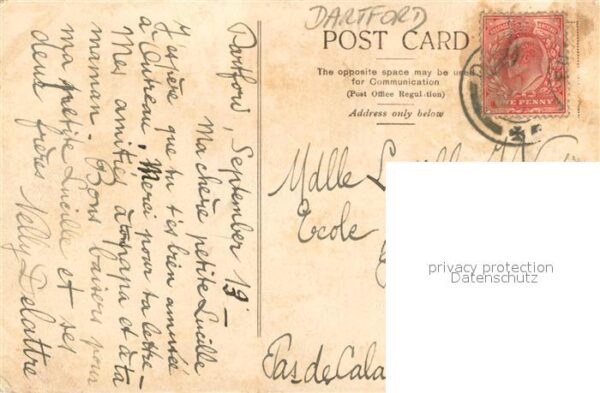 DARTFORD
POST CARD
The opposite space may be used
for Communication
(Post Office Regulation)
Address only below
ONE PENNY
Dartford, September 13 —
Ma chère petite Lucille
J'espère que tu t'es bien amusée
à . Merci pour ta lettre —
Mes amitiés à papa et à ta
maman. Bons baisers pour
ma petite Lucille et ses
deux frères Nelly Delattre
Mdlle
Ecole
Pas de Cala
privacy protection
Datenschutz